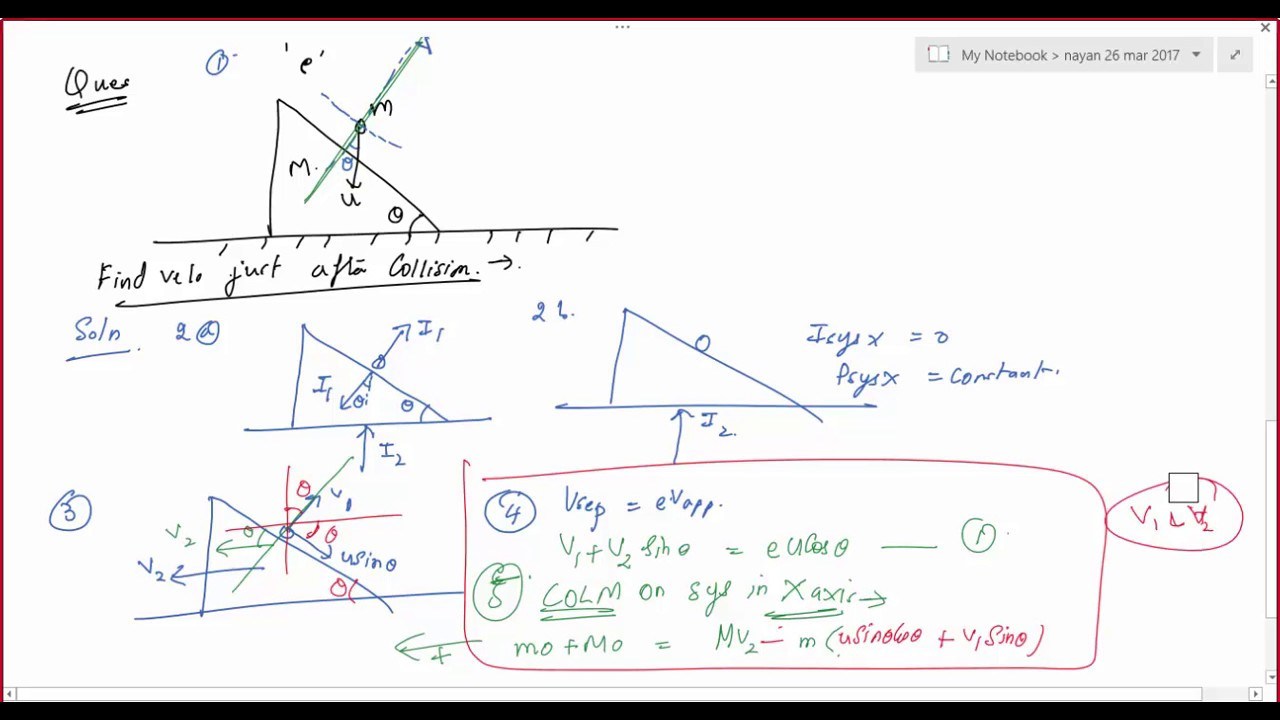 My Notebook > nayan 26 mar 2017
Ques
① 'e'
m
M.
θ
u
θ
Find velo just after Collision. →.
Soln 2ⓐ
I1
I1
θ
θ
I2
2b.
I2.
Isysx = 0
Psysx = constant.
③
θ
V1
θ
V2
θ
usinθ
V2
θ
④ Vsep = eVapp.
V1 + V2 sinθ = eucosθ — ①.
⑤ COLM on sys in X axis →
← +
m0 + M0 = MV2 – m(usinθcosθ + V1 sinθ)
V1 & V2